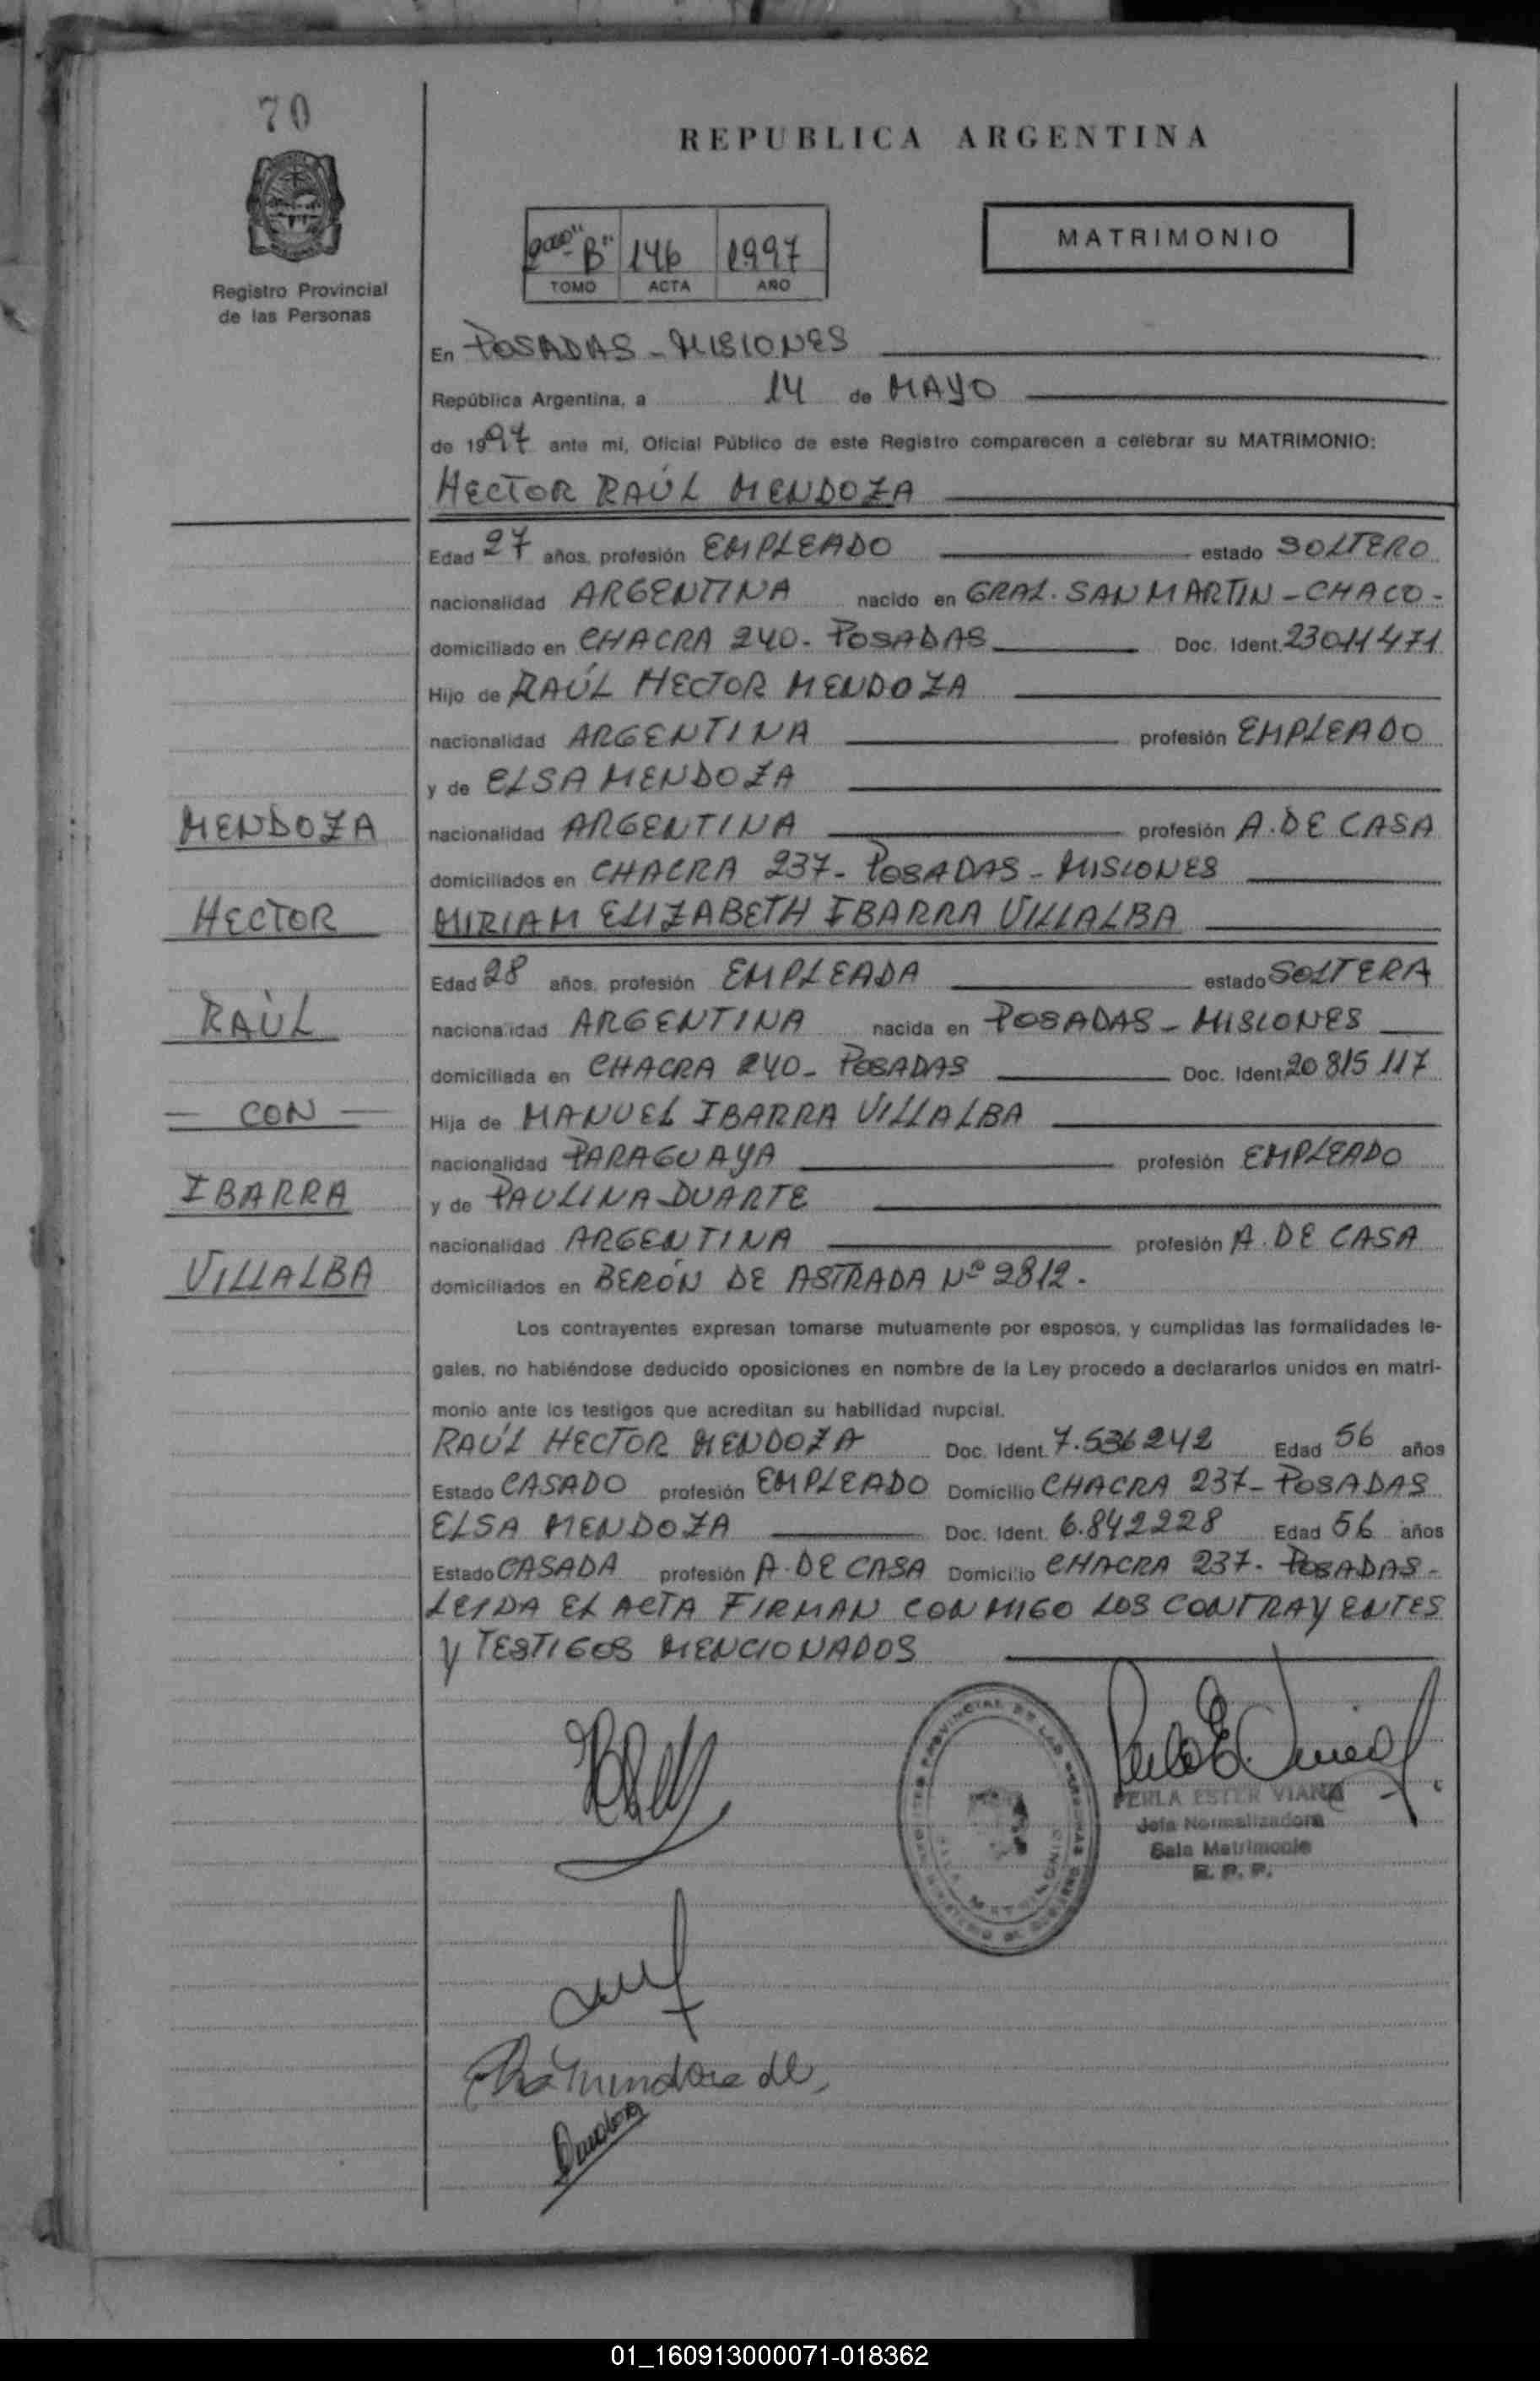 70
REPUBLICA ARGENTINA
MATRIMONIO
"B" 146 1997
TOMO ACTA AÑO
Registro Provincial
de las Personas
En POSADAS - MISIONES
República Argentina, a 14 de MAYO
de 1997 ante mi, Oficial Público de este Registro comparecen a celebrar su MATRIMONIO:
HECTOR RAÚL MENDOZA
Edad 27 años, profesión EMPLEADO estado SOLTERO
nacionalidad ARGENTINA nacido en GRAL. SAN MARTIN - CHACO -
domiciliado en CHACRA 240 - POSADAS Doc. Ident. 23011471
Hijo de RAÚL HECTOR MENDOZA
nacionalidad ARGENTINA profesión EMPLEADO
y de ELSA MENDOZA
nacionalidad ARGENTINA profesión A. DE CASA
domiciliados en CHACRA 237 - POSADAS - MISIONES
MIRIAM ELIZABETH IBARRA VILLALBA
Edad 28 años, profesión EMPLEADA estado SOLTERA
nacionalidad ARGENTINA nacida en POSADAS - MISIONES
domiciliada en CHACRA 240 - POSADAS Doc. Ident. 20815117
Hija de MANUEL IBARRA VILLALBA
nacionalidad PARAGUAYA profesión EMPLEADO
y de PAULINA DUARTE
nacionalidad ARGENTINA profesión A. DE CASA
domiciliados en BERÓN DE ASTRADA Nº 2812.
MENDOZA
HECTOR
RAÚL
- CON -
IBARRA
VILLALBA
Los contrayentes expresan tomarse mutuamente por esposos, y cumplidas las formalidades le-
gales, no habiéndose deducido oposiciones en nombre de la Ley procedo a declararlos unidos en matri-
monio ante los testigos que acreditan su habilidad nupcial.
RAÚL HECTOR MENDOZA Doc. Ident. 7.536242 Edad 56 años
Estado CASADO profesión EMPLEADO Domicilio CHACRA 237 - POSADAS
ELSA MENDOZA Doc. Ident. 6.842228 Edad 56 años
Estado CASADA profesión A. DE CASA Domicilio CHACRA 237 - POSADAS -
LEIDA EL ACTA FIRMAN CONMIGO LOS CONTRAYENTES
Y TESTIGOS MENCIONADOS
PERLA ESTER VIANA
Jefa Normalizadora
Sala Matrimonio
R. P. P.
01_160913000071-018362